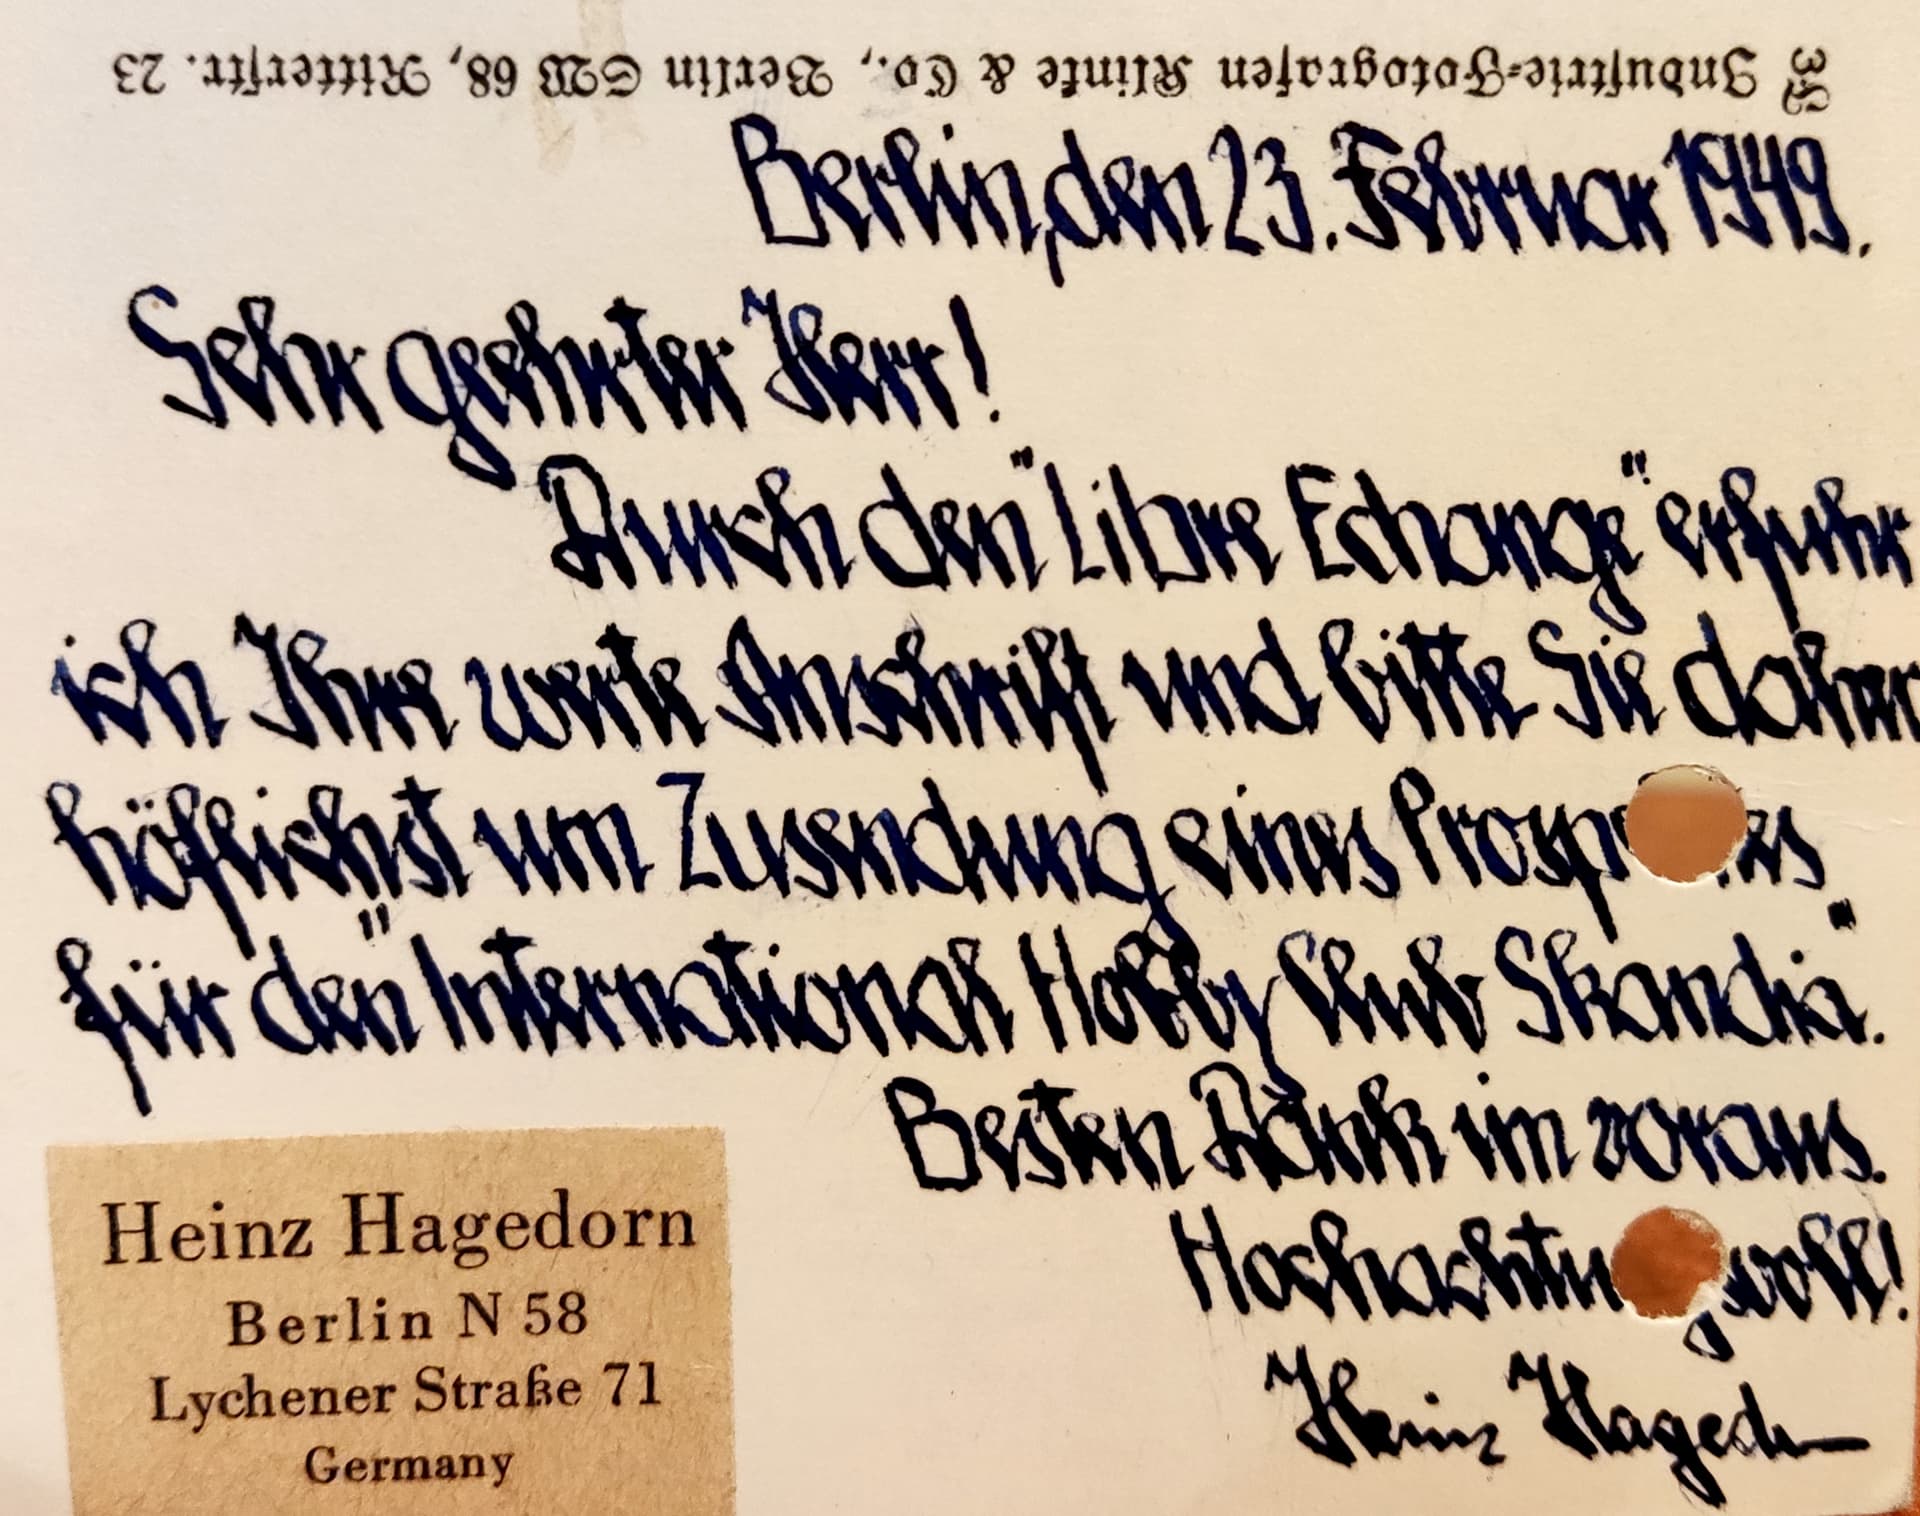 Industrie-Fotografen Klinke & Co., Berlin SW 68, Ritterstr. 23
Berlin, den 23. Februar 1949.
Sehr geehrter Herr!
Durch den "Libre Echange" erfuhr
ich Ihre werte Anschrift und bitte Sie daher
höflichst um Zusendung eines
für den "International Hobby Club Skandia".
Besten Dank im voraus.
Heinz Hagedorn
Heinz Hagedorn
Berlin N 58
Lychener Straße 71
Germany